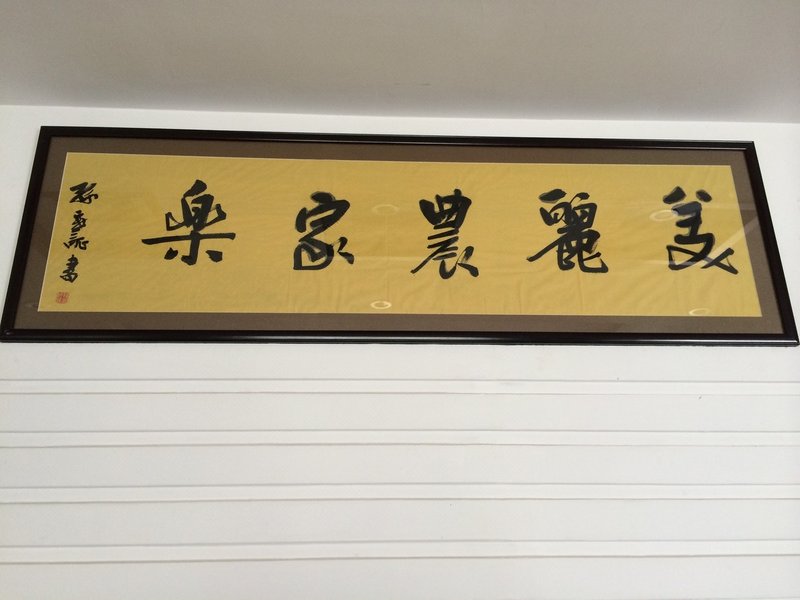 美麗農家樂
書